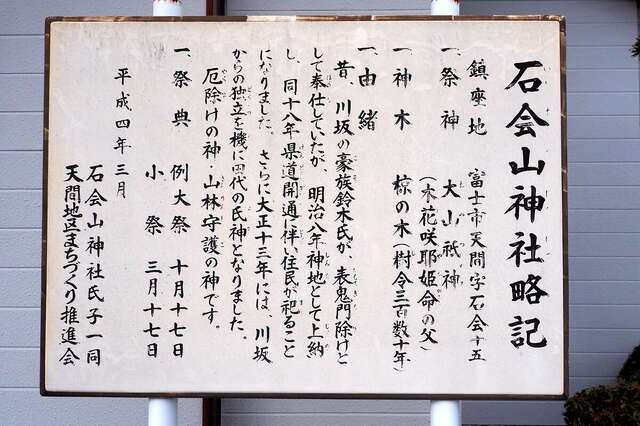 石会山神社略記
鎮座地 富士市天間字石会十五
一、祭神 大山祇神
(木花咲耶姫命の父)
一、神木 椋の木(樹令三百数十年)
一、由緒
昔、川坂の豪族鈴木氏が、表鬼門除けと
して奉仕していたが、明治八年神地として上納
し、同十八年県道開通に伴い住民が祀ること
になりました。さらに大正十三年には、川坂
からの独立を機に田代の氏神となりました。
厄除けの神・山林守護の神です。
一、祭典 例大祭 十月十七日
小祭 三月十七日
平成四年三月
石会山神社氏子一同
天間地区まちづくり推進会